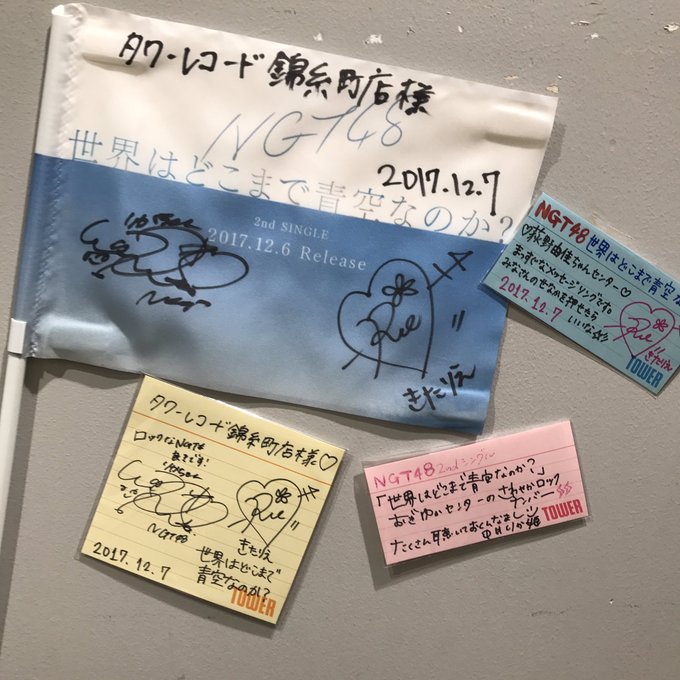 タワーレコード錦糸町店様
NGT48
2017.12.7
世界はどこまで青空なのか?
2nd SINGLE
2017.12.6 Release
NGT
Rie
きたりえ
NGT48 世界はどこまで青空な
♡荻野由佳ちゃんセンター♡
まっすぐなメッセージソングです。
みなさんのせなかを押せたら
いいな☆
2017.12.7
Rie
きたりえ
TOWER
タワーレコード錦糸町店様♡
ロックなNGTも
まてです!
Rie
きたりえ
NGT48
2017.12.7
世界はどこまで
青空なのか?
TOWER
NGT48 2ndシングル
「世界はどこまで青空なのか?」
おぎゆかセンターのさわやかロック
ナンバー
たくさん聴いておくんなましッ
中井りか姫
TOWER